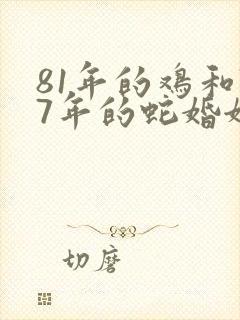 81年的鸡和
7年的蛇婚
切磨